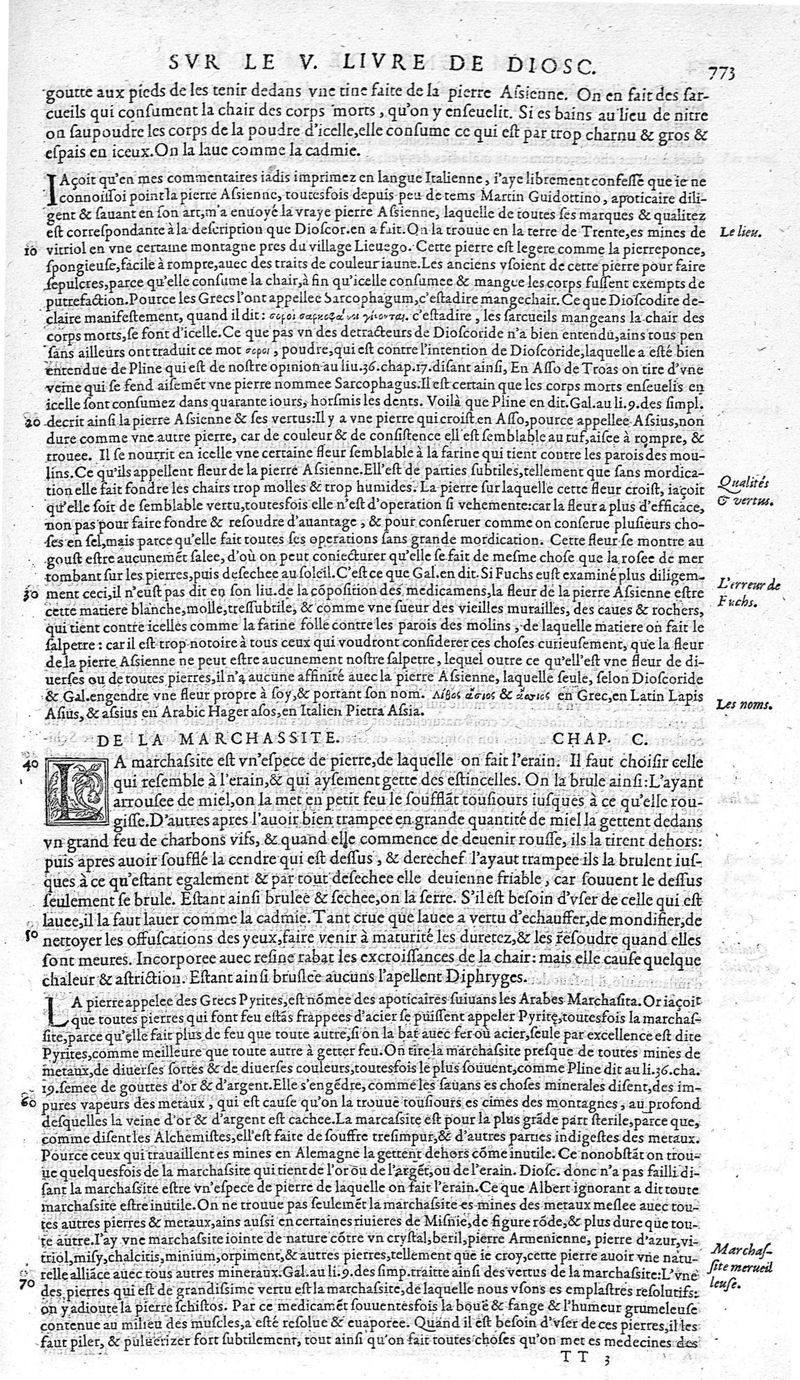 SVR LE V. LIVRE DE DIOSC. 773
goutte aux pieds de les tenir dedans vne tine faite de la pierre Aſsienne. On en fait des ſar-
cueils qui conſument la chair des corps morts, qu'on y enſeuelit. Si es bains au lieu de nitre
on ſaupoudre les corps de la poudre d'icelle, elle conſume ce qui eſt par trop charnu & gros &
eſpais en iceux. On la laue comme la cadmie.
IAçoit qu'en mes commentaires iadis imprimez en langue Italienne, i'aye librement confeſſé que ie ne
connoiſſoi point la pierre Aſsienne, toutesfois depuis peu de tems Martin Guidottino, apoticaire dili-
gent & ſauant en ſon art, m'a enuoyé la vraye pierre Aſsienne, laquelle de toutes ſes marques & qualitez
eſt correſpondante à la deſcription que Dioſcor. en a fait. On la trouue en la terre de Trente, es mines de
Le lieu.
10 vitriol en vne certaine montagne pres du village Lieuego. Cette pierre eſt legere comme la pierreponce,
ſpongieuſe, facile à rompre, auec des traits de couleur iaune. Les anciens vſoient de cette pierre pour faire
ſepulcres, parce qu'elle conſume la chair, à fin qu'icelle conſumee & mangue les corps fuſſent exempts de
putrefaction. Pource les Grecs l'ont appellee Sarcophagum, c'eſtadire mangechair. Ce que Dioſcodire de-
claire manifeſtement, quand il dit: σοροὶ σαρκοφάγοι γίνονται. c'eſtadire, les ſarcueils mangeans la chair des
corps morts, ſe font d'icelle. Ce que pas vn des detracteurs de Dioſcoride n'a bien entendu, ains tous pen
ſans ailleurs ont traduit ce mot σοροι, poudre, qui eſt contre l'intention de Dioſcoride, laquelle a eſté bien
entendue de Pline qui eſt de noſtre opinion au liu. 36. chap. 17. diſant ainſi, En Aſſo de Troas on tire d'vne
veine qui ſe fend aiſemẽt vne pierre nommee Sarcophagus. Il eſt certain que les corps morts enſeuelis en
icelle ſont conſumez dans quarante iours, horſmis les dents. Voilà que Pline en dit. Gal. au li. 9. des ſimpl.
20 decrit ainſi la pierre Aſsienne & ſes vertus: Il y a vne pierre qui croiſt en Aſſo, pource appellee Aſsius, non
dure comme vne autre pierre, car de couleur & de conſiſtence ell'eſt ſemblable au tuf, aiſee à rompre, &
trouee. Il ſe nourrit en icelle vne certaine fleur ſemblable à la farine qui tient contre les parois des mou-
lins. Ce qu'ils appellent fleur de la pierre Aſsienne. Ell'eſt de parties ſubtiles, tellement que ſans mordica-
tion elle fait fondre les chairs trop molles & trop humides. La pierre ſur laquelle cette fleur croiſt, iaçoit
Qualités
qu'elle ſoit de ſemblable vertu, toutesfois elle n'eſt d'operation ſi vehemente: car la fleur a plus d'efficace,
& vertus.
non pas pour faire fondre & reſoudre d'auantage, & pour conſeruer comme on conſerue pluſieurs cho-
ſes en ſel, mais parce qu'elle fait toutes ſes operations ſans grande mordication. Cette fleur ſe montre au
gouſt eſtre aucunemẽt ſalee, d'où on peut coniecturer qu'elle ſe fait de meſme choſe que la roſee de mer
tombant ſur les pierres, puis deſechee au ſoleil. C'eſt ce que Gal. en dit. Si Fuchs euſt examiné plus diligem-
L'erreur de
30 ment ceci, il n'euſt pas dit en ſon liu. de la cõpoſition des medicamens, la fleur de la pierre Aſsienne eſtre
Fuchs.
cette matiere blanche, molle, treſſubtile, & comme vne ſueur des vieilles murailles, des caues & rochers,
qui tient contre icelles comme la farine folle contre les parois des molins, de laquelle matiere on fait le
ſalpetre: car il eſt trop notoire à tous ceux qui voudront conſiderer ces choſes curieuſement, que la fleur
de la pierre Aſsienne ne peut eſtre aucunement noſtre ſalpetre, lequel outre ce qu'ell'eſt vne fleur de di-
uerſes ou de toutes pierres, il n'a aucune affinité auec la pierre Aſsienne, laquelle ſeule, ſelon Dioſcoride
& Gal. engendre vne fleur propre à ſoy, & portant ſon nom. λίθος ἄσιος & ἄσσιος en Grec, en Latin Lapis
Les noms.
Aſius, & aſsius en Arabic Hager aſos, en Italien Pietra Aſsia.
DE LA MARCHASSITE. CHAP. C.
40 LA marchaſsite eſt vn'eſpece de pierre, de laquelle on fait l'erain. Il faut choiſir celle
qui reſemble à l'erain, & qui ayſement gette des eſtincelles. On la brule ainſi: L'ayant
arrouſee de miel, on la met en petit feu le ſoufflãt touſiours iuſques à ce qu'elle rou-
giſſe. D'autres apres l'auoir bien trampee en grande quantité de miel la gettent dedans
vn grand feu de charbons vifs, & quand elle commence de deuenir rouſſe, ils la tirent dehors:
puis apres auoir ſoufflé la cendre qui eſt deſſus, & derechef l'ayaut trampee ils la brulent iuſ-
ques à ce qu'eſtant egalement & par tout deſechee elle deuienne friable, car ſouuent le deſſus
ſeulement ſe brule. Eſtant ainſi brulee & ſechee, on la ſerre. S'il eſt beſoin d'vſer de celle qui eſt
lauee, il la faut lauer comme la cadmie. Tant crue que lauee a vertu d'echauffer, de mondifier, de
50 nettoyer les offuſcations des yeux, faire venir à maturité les duretez, & les reſoudre quand elles
ſont meures. Incorporee auec reſine rabat les excroiſſances de la chair: mais elle cauſe quelque
chaleur & aſtriction. Eſtant ainſi bruſlee aucuns l'apellent Diphryges.
LA pierre appelee des Grecs Pyrites, eſt nõmee des apoticaires ſuiuans les Arabes Marchaſita. Or iaçoit
que toutes pierres qui font feu eſtãs frappees d'acier ſe puiſſent appeler Pyrite, toutesfois la marchaſ-
ſite, parce qu'elle fait plus de feu que toute autre, ſi on la bat auec fer où acier, ſeule par excellence eſt dite
Pyrites, comme meilleure que toute autre à getter feu. On tire la marchaſsite preſque de toutes mines de
metaux, de diuerſes ſortes & de diuerſes couleurs, toutesfois le plus ſouuent, comme Pline dit au li. 36. cha.
19. ſemee de gouttes d'or & d'argent. Elle s'engẽdre, comme les ſauans es choſes minerales diſent, des im-
60 pures vapeurs des metaux, qui eſt cauſe qu'on la trouue touſiours es cimes des montagnes, au profond
deſquelles la veine d'or & d'argent eſt cachee. La marcaſsite eſt pour la plus grãde part ſterile, parce que,
comme diſent les Alchemiſtes, ell'eſt faite de ſouffre treſimpur, & d'autres parties indigeſtes des metaux.
Pource ceux qui trauaillent es mines en Alemagne la gettent dehors cõme inutile. Ce nonobſtãt on trou-
ue quelquesfois de la marchaſsite qui tient de l'or ou de l'argẽt, ou de l'erain. Dioſc. donc n'a pas failli di-
ſant la marchaſsite eſtre vn'eſpece de pierre de laquelle on fait l'erain. Ce que Albert ignorant a dit toute
marchaſsite eſtre inutile. On ne trouue pas ſeulemẽt la marchaſsite es mines des metaux meſlee auec tou-
tes autres pierres & metaux, ains auſsi en certaines riuieres de Miſnie, de figure rõde, & plus dure que tou-
te autre. I'ay vne marchaſsite iointe de nature cõtre vn cryſtal, beril, pierre Armenienne, pierre d'azur, vi-
Marchaſ-
triol, miſy, chalcitis, minium, orpiment, & autres pierres, tellement que ie croy, cette pierre auoir vne natu-
ſite merueil
relle alliãce auec tous autres mineraux. Gal. au li. 9. des ſimp. traitte ainſi des vertus de la marchaſsite: L'vne
leuſe.
70 des pierres qui eſt de grandiſsime vertu eſt la marchaſsite, de laquelle nous vſons es emplaſtres reſolutifs:
on y adioute la pierre ſchiſtos. Par ce medicamẽt ſouuentesfois la bouë & fange & l'humeur grumeleuſe
contenue au milieu des muſcles, a eſté reſolue & euaporee. Quand il eſt beſoin d'vſer de ces pierres, il les
faut piler, & puluerizer fort ſubtilement, tout ainſi qu'on fait toutes choſes qu'on met es medecines des
TT 3